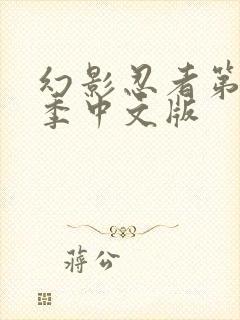 幻影忍者第
季中文版
蒋公